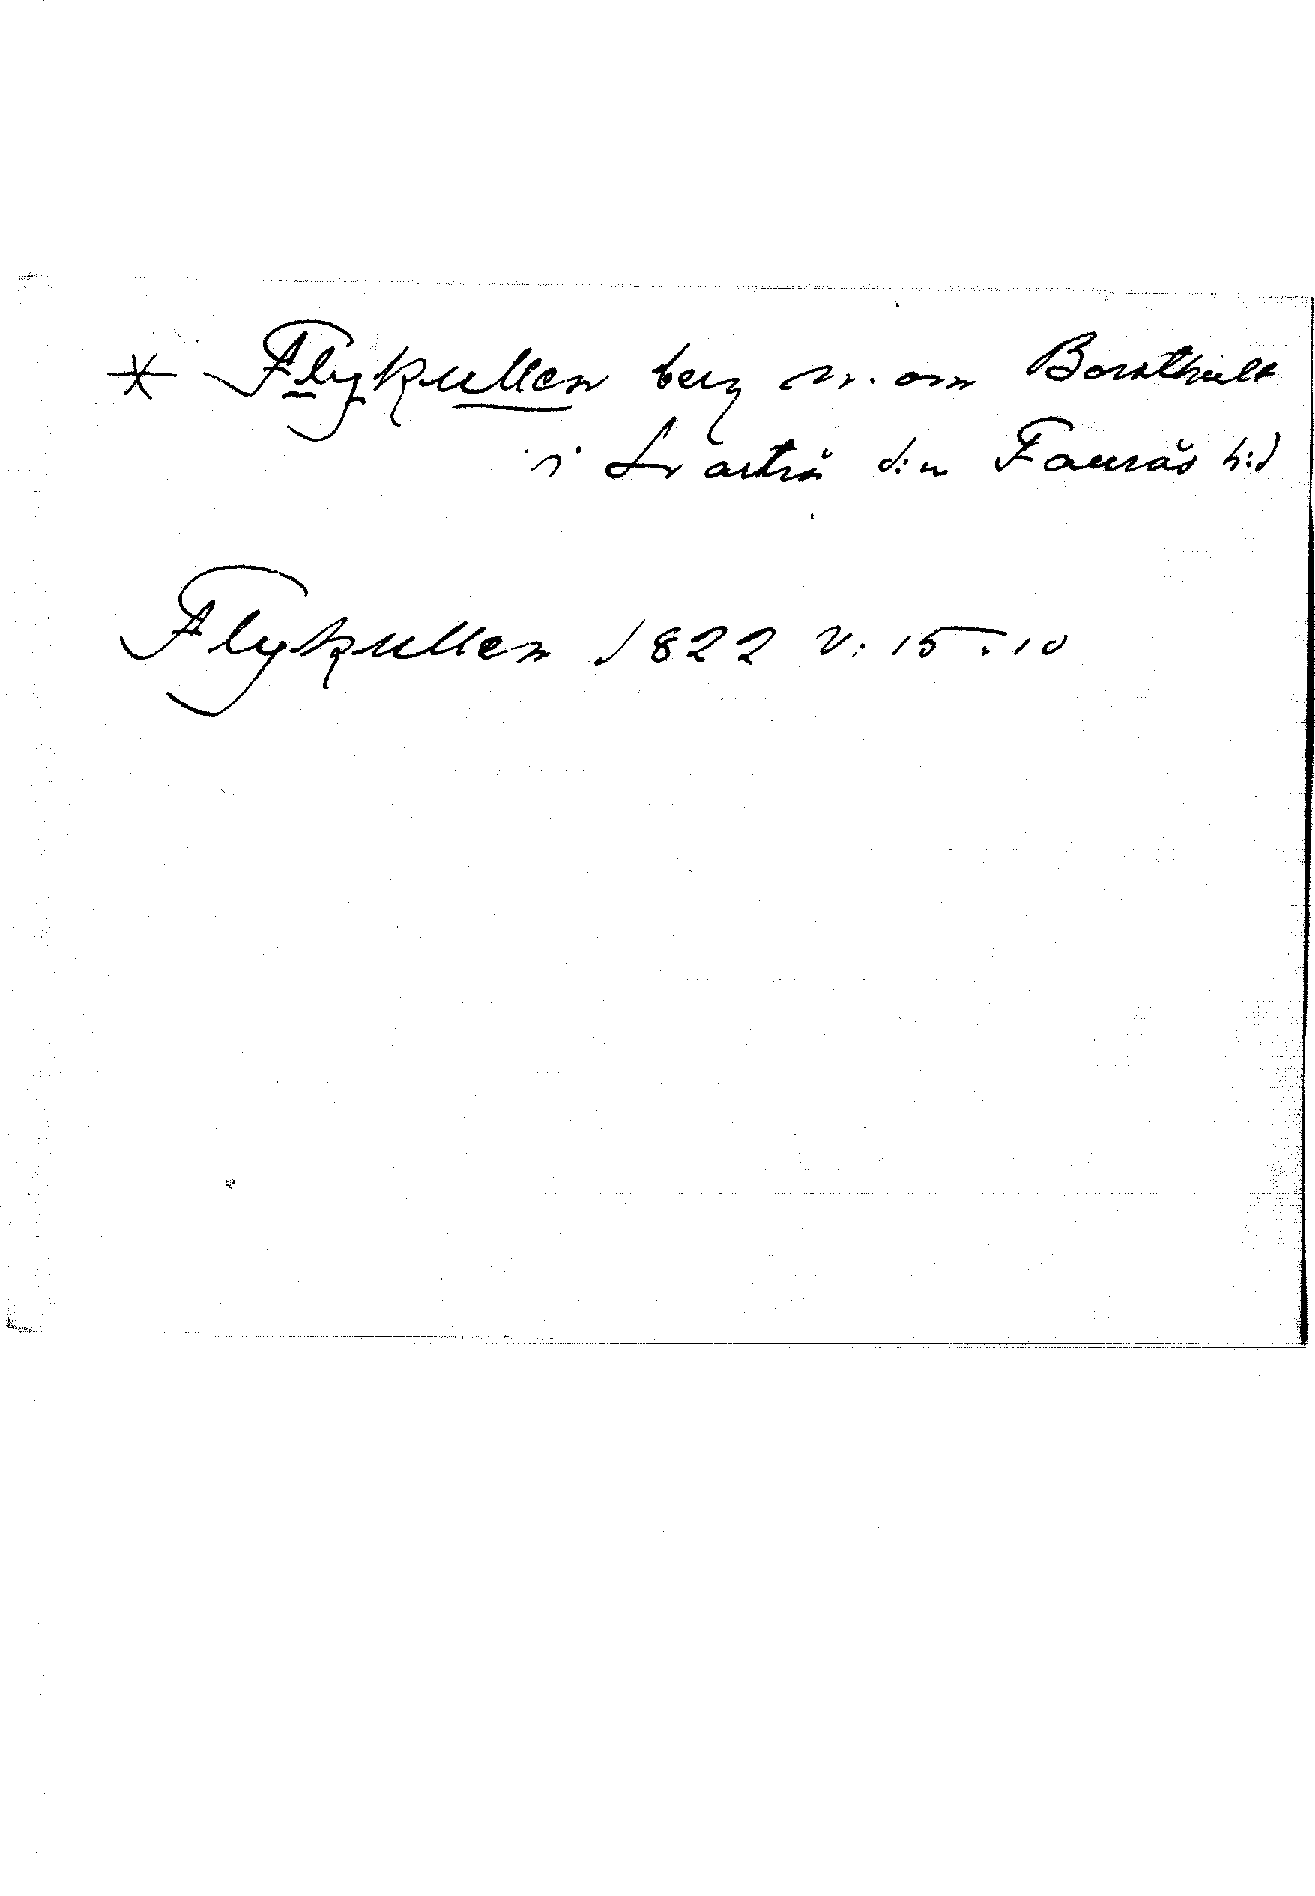 * Flykullen berg n. om Borsthult
i Svartrå s:n Faurås h:d
Flykullen 1822 V: 15 : 10